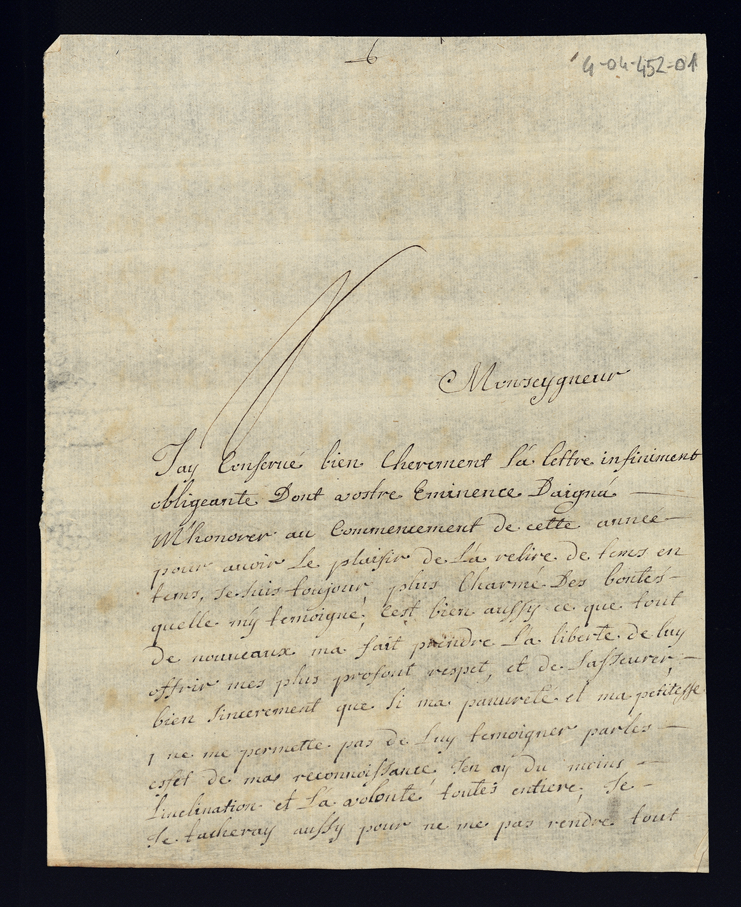 6
4-04-452-01
Monseygneur
Jay Conserué bien Cherement La lettre infiniment
obligeante Dont vostre Eminence Daigna
M'honorer au Commencement de cette année
pour auoir Le plaisir de La relire de tems en
tems, Je suis toujour plus Charmé Des bontés
quelle m'y temoigne, Cest bien aussy ce que tout
De nouueaux ma fait preindre La liberte de luy
offrir mes plus profont respet, et de Lasseurer
bien Sincerement que Si ma pauureté et ma petitesse
ne me permette pas de Luy temoigner par les
efset de mas reconnoissance, Jen ay du moins
Linclination et La volonté toutes entiere, Je
Je tacheray aussy pour ne me pas rendre tout